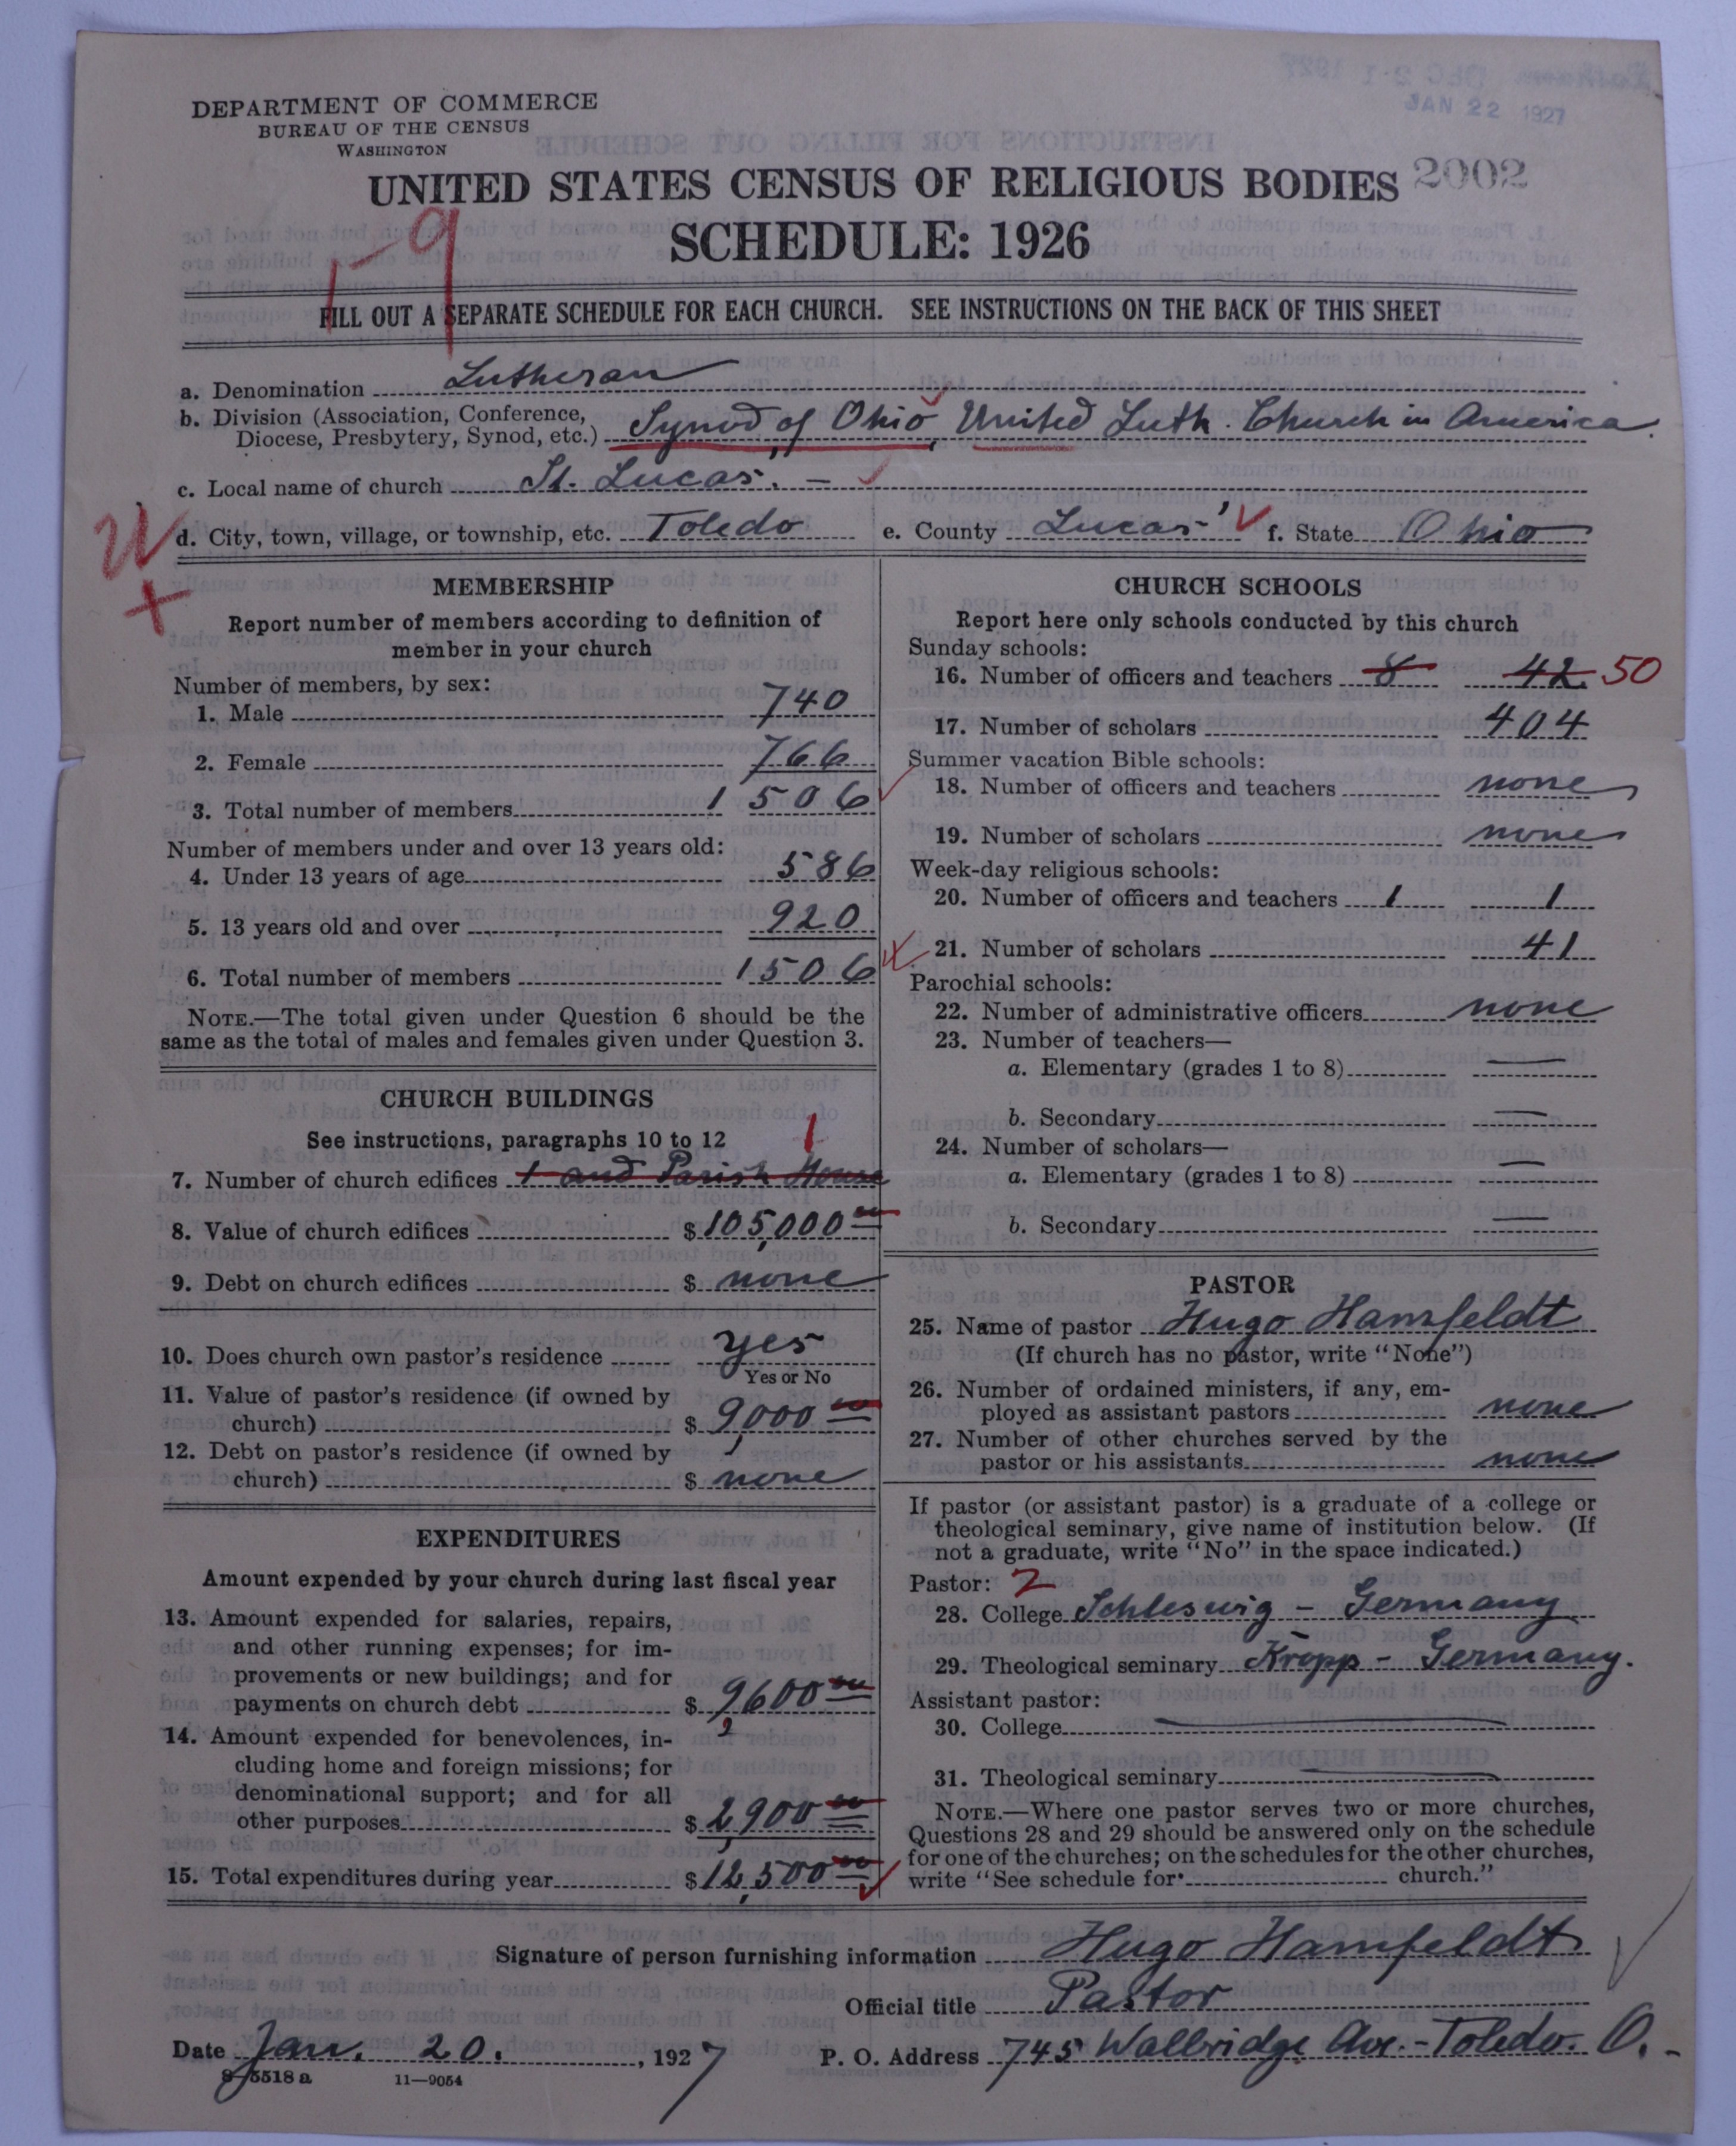 DEPARTMENT OF COMMERCE
BUREAU OF THE CENSUS
WASHINGTON
JAN 22 1927
UNITED STATES CENSUS OF RELIGIOUS BODIES 2002
SCHEDULE: 1926
1-9
FILL OUT A SEPARATE SCHEDULE FOR EACH CHURCH. SEE INSTRUCTIONS ON THE BACK OF THIS SHEET
a. Denomination Lutheran
b. Division (Association, Conference,
Diocese, Presbytery, Synod, etc.) Synod of Ohio, United Luth. Church in America.
c. Local name of church St. Lucas. -
d. City, town, village, or township, etc. Toledo e. County Lucas f. State Ohio
MEMBERSHIP
Report number of members according to definition of
member in your church
Number of members, by sex:
1. Male 740
2. Female 766
3. Total number of members 1506
Number of members under and over 13 years old:
4. Under 13 years of age 586
5. 13 years old and over 920
6. Total number of members 1506
NOTE.—The total given under Question 6 should be the
same as the total of males and females given under Question 3.
CHURCH BUILDINGS
See instructions, paragraphs 10 to 12 1
7. Number of church edifices 1 and Parish House
8. Value of church edifices $105,000 00
9. Debt on church edifices $ none
10. Does church own pastor's residence yes
Yes or No
11. Value of pastor's residence (if owned by
church) $ 9,000 00
12. Debt on pastor's residence (if owned by
church) $ none
EXPENDITURES
Amount expended by your church during last fiscal year
13. Amount expended for salaries, repairs,
and other running expenses; for im-
provements or new buildings; and for
payments on church debt $ 9,600 00
14. Amount expended for benevolences, in-
cluding home and foreign missions; for
denominational support; and for all
other purposes $ 2,900 00
15. Total expenditures during year $12,500 00
CHURCH SCHOOLS
Report here only schools conducted by this church
Sunday schools:
16. Number of officers and teachers 8 42 50
17. Number of scholars 404
Summer vacation Bible schools:
18. Number of officers and teachers none
19. Number of scholars none
Week-day religious schools:
20. Number of officers and teachers 1 1
21. Number of scholars 41
Parochial schools:
22. Number of administrative officers none
23. Number of teachers—
a. Elementary (grades 1 to 8)
b. Secondary
24. Number of scholars—
a. Elementary (grades 1 to 8)
b. Secondary
PASTOR
25. Name of pastor Hugo Hamfeldt
(If church has no pastor, write "None")
26. Number of ordained ministers, if any, em-
ployed as assistant pastors none
27. Number of other churches served by the
pastor or his assistants none
If pastor (or assistant pastor) is a graduate of a college or
theological seminary, give name of institution below. (If
not a graduate, write "No" in the space indicated.)
Pastor: 2
28. College Schleswig - Germany
29. Theological seminary Kropp - Germany.
Assistant pastor:
30. College
31. Theological seminary
NOTE.—Where one pastor serves two or more churches,
Questions 28 and 29 should be answered only on the schedule
for one of the churches; on the schedules for the other churches,
write "See schedule for church."
Signature of person furnishing information Hugo Hamfeldt
Official title Pastor
Date Jan. 20., 1927 P. O. Address 745 Walbridge Ave. - Toledo. O. -
8-5518 a 11—9054